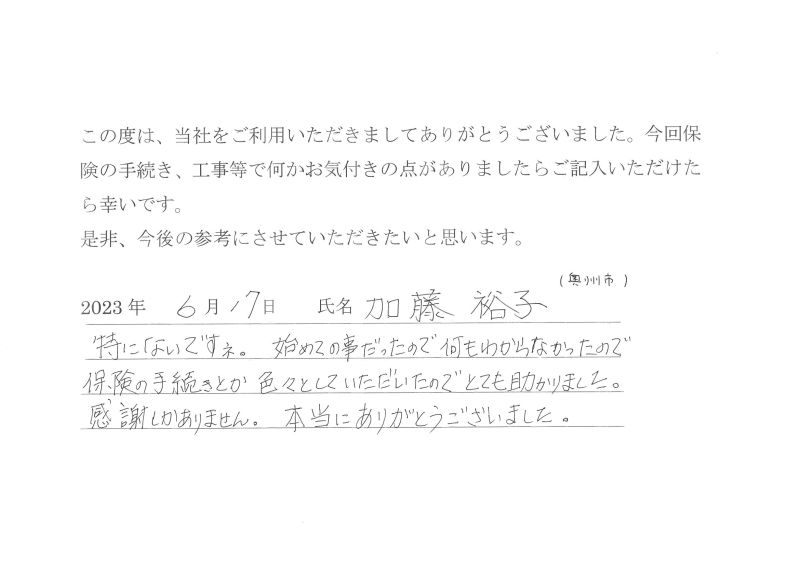 この度は、当社をご利用いただきましてありがとうございました。今回保
険の手続き、工事等で何かお気付きの点がありましたらご記入いただけた
ら幸いです。
是非、今後の参考にさせていただきたいと思います。
(奥州市)
2023年 6月17日 氏名 加藤 裕子
特にないですネ。 始めての事だったので何もわからなかったので
保険の手続きとか色々としていただいたのでとても助かりました。
感謝しかありません。 本当にありがとうございました。